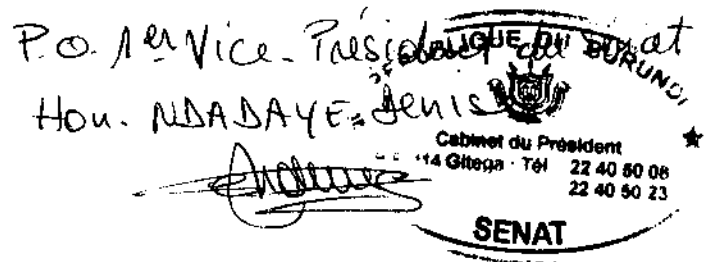 P.O. 1er Vice-Président du Sénat
Hon. NDADAYE Denis
REPUBLIQUE DU BURUNDI
Cabinet du Président
14 Gitega - Tél 22 40 50 08
22 40 50 23
SENAT